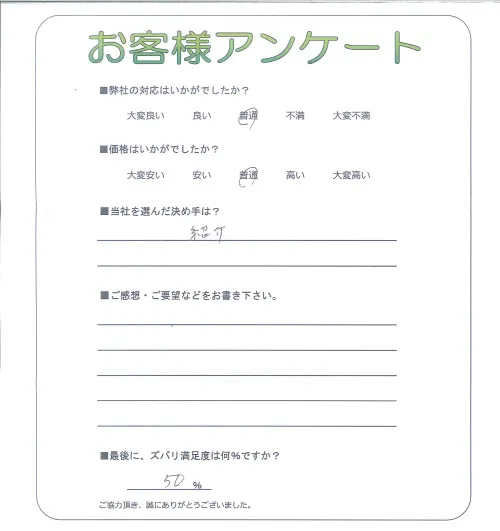 お客様アンケート
■弊社の対応はいかがでしたか？
大変良い 良い 普通 不満 大変不満
■価格はいかがでしたか？
大変安い 安い 普通 高い 大変高い
■当社を選んだ決め手は？
紹介
■ご感想・ご要望などをお書き下さい。
■最後に、ズバリ満足度は何％ですか？
50 ％
ご協力頂き、誠にありがとうございました。